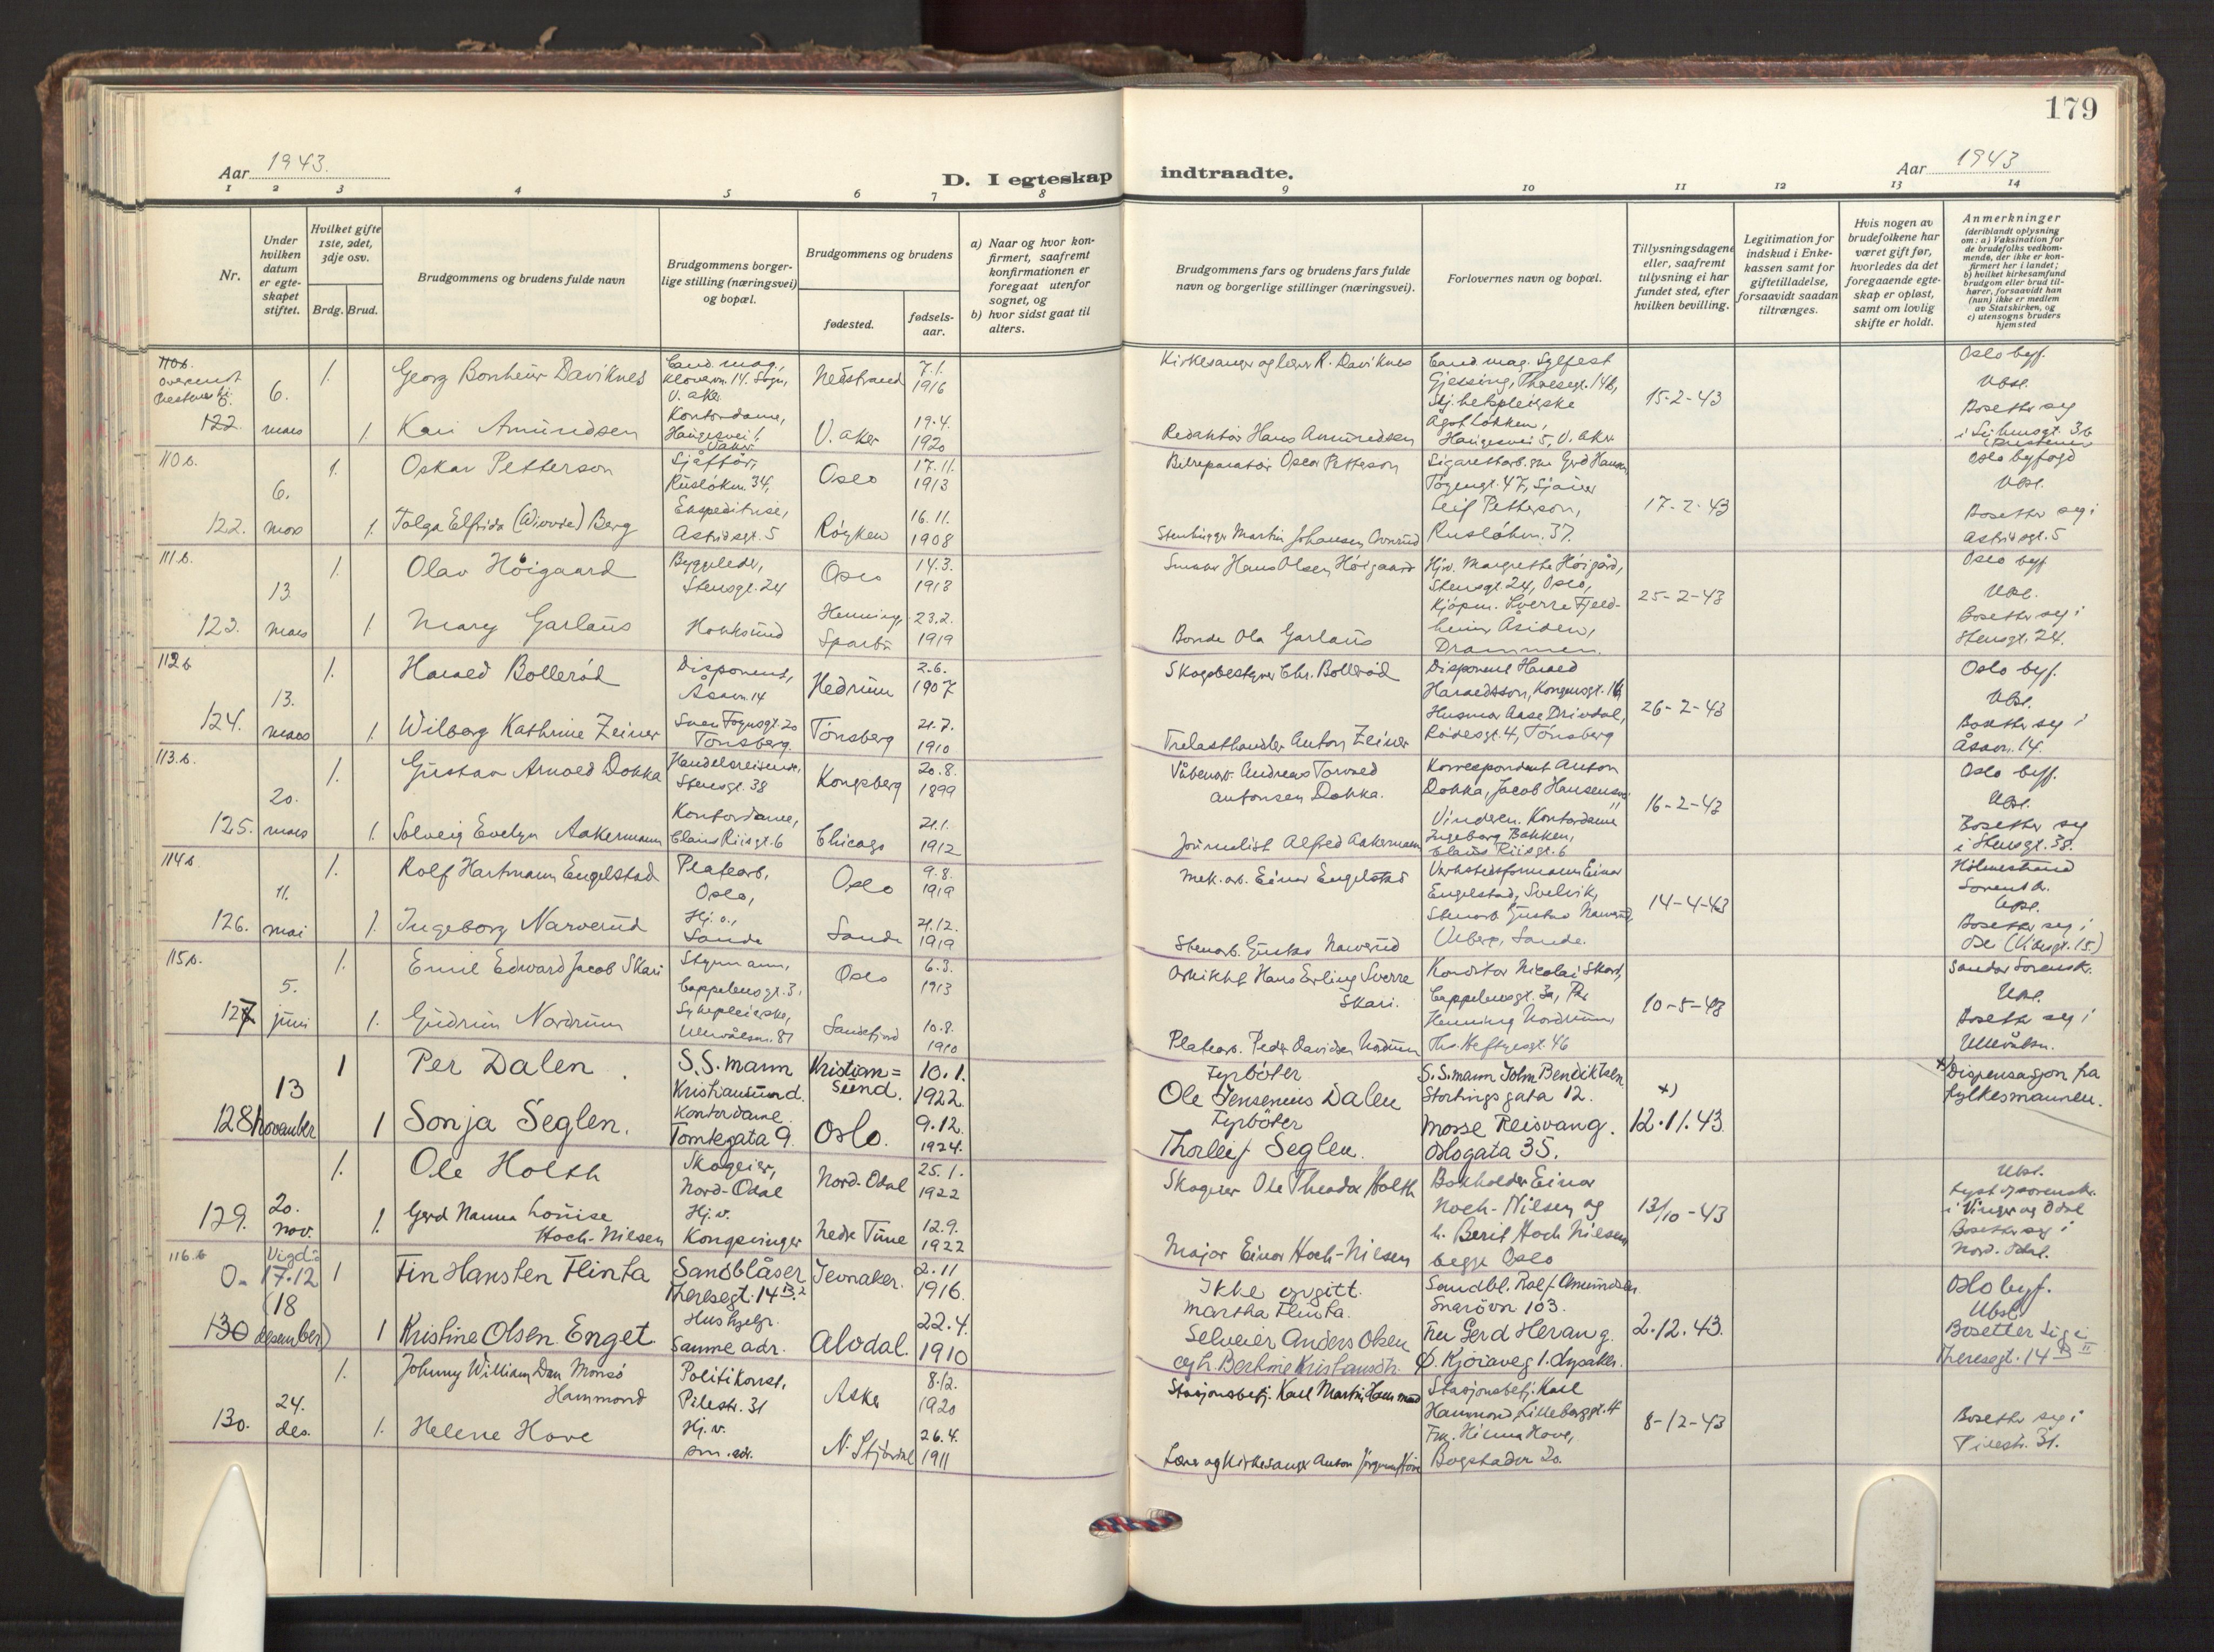 179
Aar 1943.
D. I egteskap indtraadte.
Aar 1943
1 2 3 4 5 6 7 8 9 10 11 12 13 14
Nr.
Under hvilken datum er egteskapet stiftet.
Hvilket gifte 1ste, 2det, 3dje osv.
Brdg. Brud.
Brudgommens og brudens fulde navn
Brudgommens borgerlige stilling (næringsvei) og bopæl.
Brudgommens og brudens
fødested.
fødselsaar.
a) Naar og hvor konfirmert, saafremt konfirmationen er foregaat utenfor sognet, og
b) hvor sidst gaat til alters.
Brudgommens fars og brudens fars fulde navn og borgerlige stillinger (næringsvei).
Forlovernes navn og bopæl.
Tillysningsdagene eller, saafremt tillysning ei har fundet sted, efter hvilken bevilling.
Legitimation for indskud i Enkekassen samt for giftetilladelse, forsaavidt saadan tiltrænges.
Hvis nogen av brudefolkene har været gift før, hvorledes da det foregaaende egteskap er opløst, samt om lovlig skifte er holdt.
Anmerkninger
(deriblandt oplysning om: a) Vaksination for de brudefolks vedkommende, der ikke er konfirmert her i landet; b) hvilket kirkesamfund brudgom eller brud tilhører, forsaavidt han (hun) ikke er medlem av Statskirken, og c) utensogns bruders hjemsted
122 6. mars
1. Georg Bonheur Daviknes Cand. mag., Nedstrand 7.1. 1916
1. Kari Amundsen Kontordame, V. Aker 19.4. 1920
Kirkesanger og lærer R. Daviknes
Redaktør Hans Amundsen
Cand. mag. Sylfest Gjessing, Theresegt. 14b,
15-2-43
Oslo byf.
Bosetter seg
110 b.
122. 6. mars
1. Oskar Petterson Sjåfør, Oslo 17.11. 1913
1. Tolga Elfrida Berg Ekspeditrise, Astridsgt. 5 Røyken 16.11. 1908
Bilreparatør Oscar Petterson
Stenhugger Martin Johansen
Leif Petterson,
17-2-43
Oslo byfogd
Bosetter seg i Astridsgt. 5
111 b.
123. 13 mars
1. Olav Höigaard Byggeleder, Stensgt. 24 Oslo 14.3. 1918
1 Mary Garlaus Hokksund Henning, Sparbu 23.2. 1919
Hans Olsen Höigaard
Bonde Ola Garlaus
Hjv. Margrethe Höigård, Stensgt. 24, Oslo,
Kjöpm. Sverre Fjeldheim Åsiden, Drammen.
25-2-43
Oslo byf
Bosetter seg i Stensgt. 24.
112 b
124. 13. mars
1. Harald Bolleröd Disponent, Åsavn. 14 Hedrum 2.6. 1907
1 Wilborg Kathrine Zeiner Tønsberg. Tønsberg 21.7. 1910
Skogbestyrer Chr. Bolleröd
Trelasthandler Anton Zeiner
Disponent Harald Haraldsson, Kongensgt. 16,
Husmor Aase Drivdal, Tønsberg
26-2-43
Oslo byf.
Bosetter seg i Åsavn. 14.
113. b.
125. 20. mars
1. Gustav Arnold Dokka Handelsreisende, Stensgt. 38 Kongsberg 20.8. 1899
1. Solveig Evelyn Aakermann Kontordame, Claus Riisgt. 6 Chicago 21.1. 1912
Våbenarb. Andreas Torvald Antonsen Dokka.
Journalist Alfred Aakermann
Korrespondent Anton Dokka, Jacob Hansensv.
Vinderen. Kontordame Ingeborg Bakken, Claus Riisgt. 6
16-2-43
Oslo byf.
Bosetter seg i Stensgt. 38.
114 b.
126. 11. mai
1. Rolf Hartmann Engelstad Platearb, Oslo, Oslo 9.8. 1919
1. Ingeborg Narverud Hj. v., Sande Sande 21.12. 1919
Mek. arb. Einar Engelstad
Stenarb. Gustav Narverud
Verkstedsformann Einar Engelstad, Svelvik,
Stenarb Gustav Narverud, Sande.
14-4-43
Holmestrand
Bosetter seg i
115 b.
127 5. juni
1. Emil Edward Jacob Skari Styrmann, Cappelensgt. 3, Oslo 6.3. 1913
1. Gudrun Nordrum Sykepleierske, Ullevålsvn. 87 Sandefjord 10.8. 1910
Arkitekt Hans Erling Sverre Skari.
Platearb. Peder Davidsen Nordrum
Konditor Nicolai Skari, Cappelensgt. 3a,
Henning Nordrum Ths. Heftyesgt. 46
10-5-43
Sandar Sorensk.
Bosetter seg i Ullevålsvn.
128 13 november
1 Per Dalen. S.S. mann Kristiansund. Kristian=sund. 10.1. 1922
1 Sonja Seglen. Kontordame Tomtegata 9. Oslo. 9.12. 1924.
Fyrböter Ole Jensenius Dalen
Fyrböter Thorleif Seglen.
S.S. mann John Bendiktsen Stortingsgata 12.
Mosse Reisvang. Oslogata 35.
x) 12.11.43.
x) Dispensasjon fra fylkesmannen.
129. 20. nov.
1. Ole Holth Skogeier, Nord-Odal Nord-Odal 25.1. 1922
1. Gerd Nanna Louise Hoch-Nielsen Hj. v. Kongsvinger Nedre Tune 12.9. 1922
Skogeier Ole Theodor Holth
Major Einar Hoch-Nilsen
Bokholder Einar Hoch-Nilsen og
h. Berit Hoch Nilsen begge Oslo
13/10-43
i Vinger og Odal
Bosetter seg i Nord-Odal.
116. b
130 Vigd: 17.12 (18 desember)
1 Fin Hansten Flinta Sandblåser Theresegt. 14 Jevnaker. 2.11 1916.
1 Kristine Olsen Enget. Hushjelp. Samme adr. Alvdal. 22.4. 1910
Ikke opgitt. Martha Flinta.
Selveier Anders Olsen og h. Berthine Kristiansdtr.
Sandbl. Rolf Amundsen Snarövn 103.
Fru Gerd Herang. Ö. Kjoiaveg 1. Lysaker.
2.12.43.
Oslo byf.
Bosetter sig i Theresegt. 14
130. 24. des.
1. Johnny William Dan Monsö Hammond Politikonst, Pilestr. 31 Asker 8.12. 1920
1. Helene Hove Hj. v. sm. adr. N. Stjørdal 26.4. 1911
Stasjonsbetj. Karl Martin Hammond
Lærer og kirkesanger Anton Jörgensen Hove
Stasjonsbetj. Karl Hammond, Lilleborggt. 4
Frk. Hilma Hove,
8-12-43
Bosetter seg i Pilestr. 31.